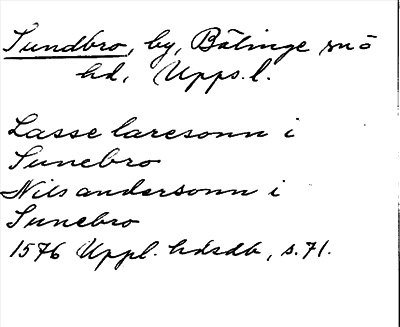 Sundbro, by, Bälinge sn o
hd, Upps. l.
Lasse laresonn i
Sunebro
Nils andersonn i
Sunebro
1576 Uppl. hdsdb, s. 71.